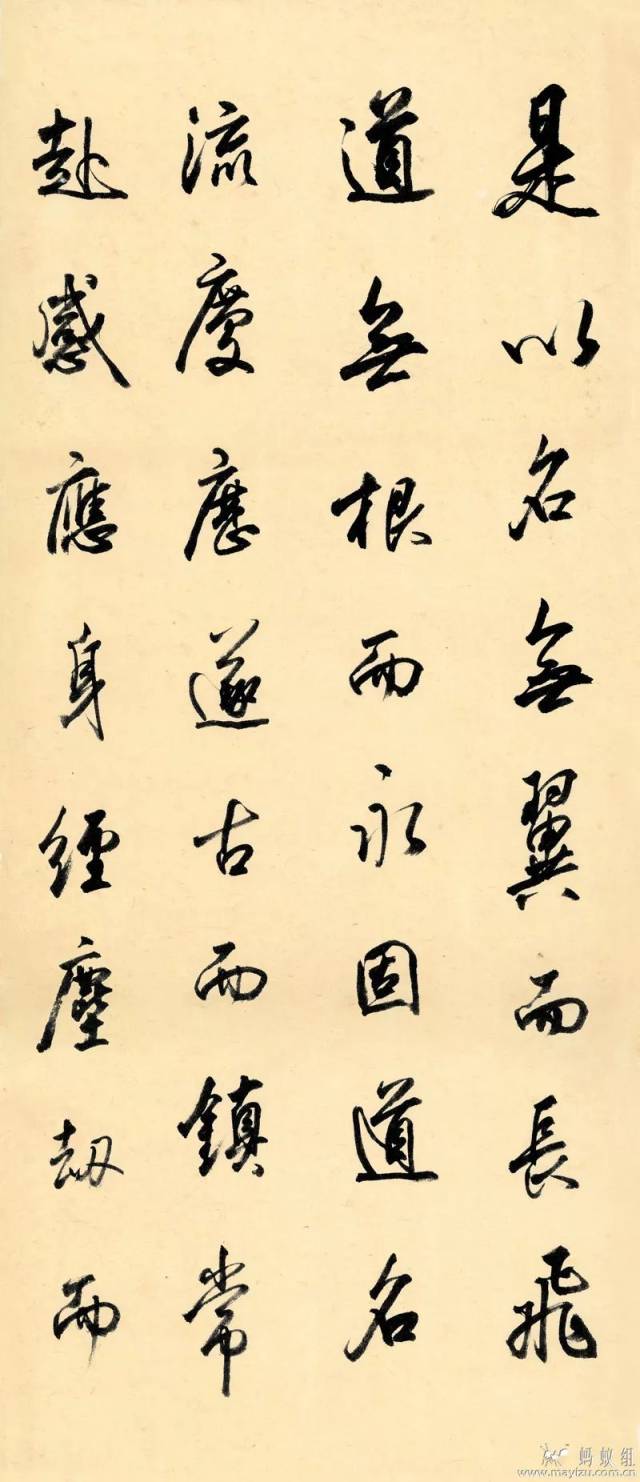 是以名無翼而長飛
道無根而永固道名
流慶歷遂古而鎮常
赴感應身經塵劫而
蚂蚁组
www.mayizu.com.cn